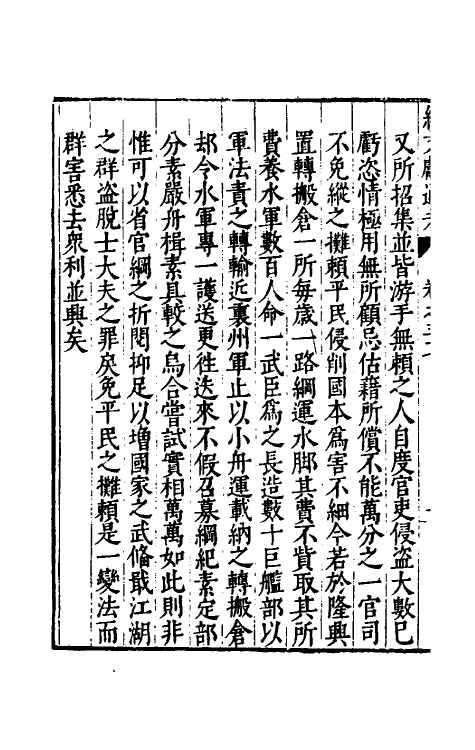 又所招集並皆游手無頼之人自度官吏侵盗大數已
虧恣情極用無所顧忌估藉所償不能萬分之一官司
不免縱之攤頼平民侵削國本爲害不細今若於隆興
置轉搬倉一所毎歳一路綱運水脚其費不貲取其所
費養水軍數百人命一武臣爲之長造數十巨艦部以
軍法責之轉輸近裏州軍止以小舟運載納之轉搬倉
却令水軍專一護送更徃迭來不假召募綱紀素定部
分素嚴舟楫素具較之烏合嘗試實相萬萬如此則非
惟可以省官綱之折閱抑足以增國家之武備戢江湖
之群盗脫士大夫之罪戾免平民之攤頼是一變法而
群害悉去衆利並興矣